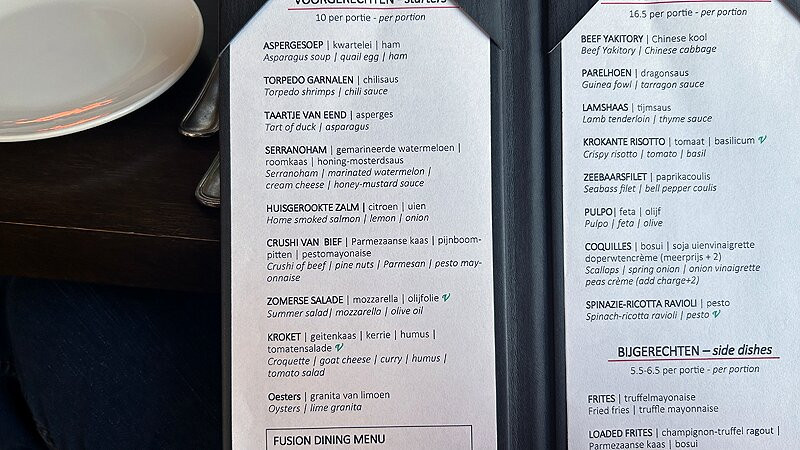 VOORGERECHTEN – starters
10 per portie - per portion
ASPERGESOEP | kwartelei | ham
Asparagus soup | quail egg | ham
TORPEDO GARNALEN | chilisaus
Torpedo shrimps | chili sauce
TAARTJE VAN EEND | asperges
Tart of duck | asparagus
SERRANOHAM | gemarineerde watermeloen |
roomkaas | honing-mosterdsaus
Serranoham | marinated watermelon |
cream cheese | honey-mustard sauce
HUISGEROOKTE ZALM | citroen | uien
Home smoked salmon | lemon | onion
CRUSHI VAN BIEF | Parmezaanse kaas | pijnboom-
pitten | pestomayonaise
Crushi of beef | pine nuts | Parmesan | pesto may-
onnaise
ZOMERSE SALADE | mozzarella | olijfolie V
Summer salad| mozzarella | olive oil
KROKET | geitenkaas | kerrie | humus |
tomatensalade V
Croquette | goat cheese | curry | humus |
tomato salad
Oesters | granita van limoen
Oysters | lime granita
FUSION DINING MENU
16.5 per portie - per portion
BEEF YAKITORY | Chinese kool
Beef Yakitory | Chinese cabbage
PARELHOEN | dragonsaus
Guinea fowl | tarragon sauce
LAMSHAAS | tijmsaus
Lamb tenderloin | thyme sauce
KROKANTE RISOTTO | tomaat | basilicum V
Crispy risotto | tomato | basil
ZEEBAARSFILET | paprikacoulis
Seabass filet | bell pepper coulis
PULPO| feta | olijf
Pulpo | feta | olive
COQUILLES | bosui | soja uienvinaigrette
doperwtencrème (meerprijs + 2)
Scallops | spring onion | onion vinaigrette
peas crème (add charge+2)
SPINAZIE-RICOTTA RAVIOLI | pesto
Spinach-ricotta ravioli | pesto V
BIJGERECHTEN – side dishes
5.5-6.5 per portie - per portion
FRITES | truffelmayonaise
Fried fries | truffle mayonnaise
LOADED FRITES | champignon-truffel ragout |
Parmezaanse kaas | bosui